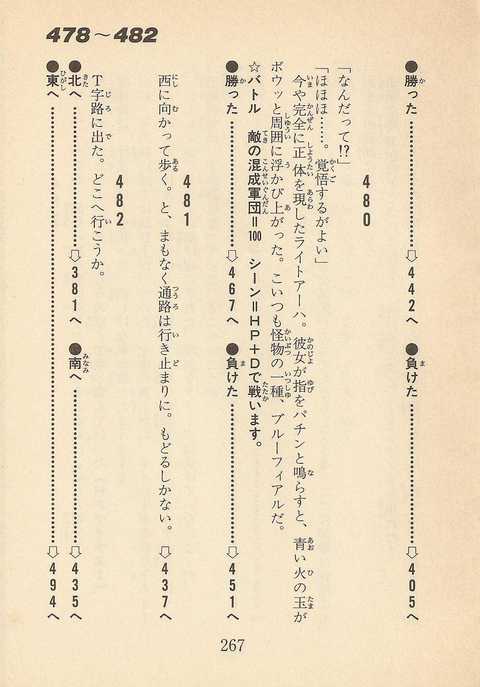 478〜482
●勝った……………⇨442へ ●負けた……………⇨405へ
480
「なんだって!?」
「ほほほ……。覚悟するがよい」
今や完全に正体を現したライトアーハ。彼女が指をパチンと鳴らすと、青い火の玉が
ボウッと周囲に浮かび上がった。こいつも怪物の一種、ブルーフィアルだ。
☆バトル 敵の混成軍団＝100 シーン＝HP＋Dで戦います。
●勝った……………⇨467へ ●負けた……………⇨451へ
481
西に向かって歩く。と、まもなく通路は行き止まりに。もどるしかない。⇨437へ
482
T字路に出た。どこへ行こうか。
●北へ……………⇨381へ ●南へ……………⇨435へ
●東へ……………⇨494へ
267